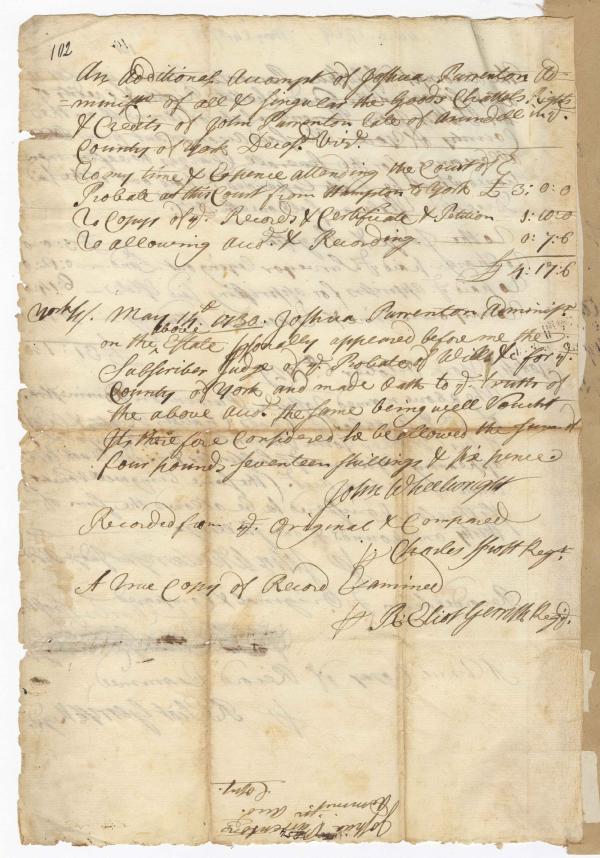 102
An Additional Accompt of Joshua Purrenton Ad=
=ministr of all & singular the Goods Chattels Rights
& Credits of John Purrenton late of Arundell in ye
County of York Decesd. Vizt.
To my time & Expence attending the Court of
Probate at this Court from Hampton to York £ 3: 0: 0
To Copys of ye. Records & Certificate & Petition 1: 10: 0
To allowing Acct. & Recording 0: 7: 6
£ 4: 17: 6
York ss. May 14th 1730. Joshua Purrenton Administr.
above
on the Estate psonally appeared before me the
Subscriber Judge of ye. Probate of Wills &c for ye.
County of York and made Oath to ye. truth of
the above Acct. the same being well Voucht
Its therefore Considered to be allowed the sum of
four pounds seventeen shillings & six pence
John Wheelwright
Recorded from ye. Original & Compared
Charles Frost Regr.
A True Copy of Record Examined
R: Eliot Gerrish Regr.
Joshua Purrenton
Adminr.
Acct.
Copy.